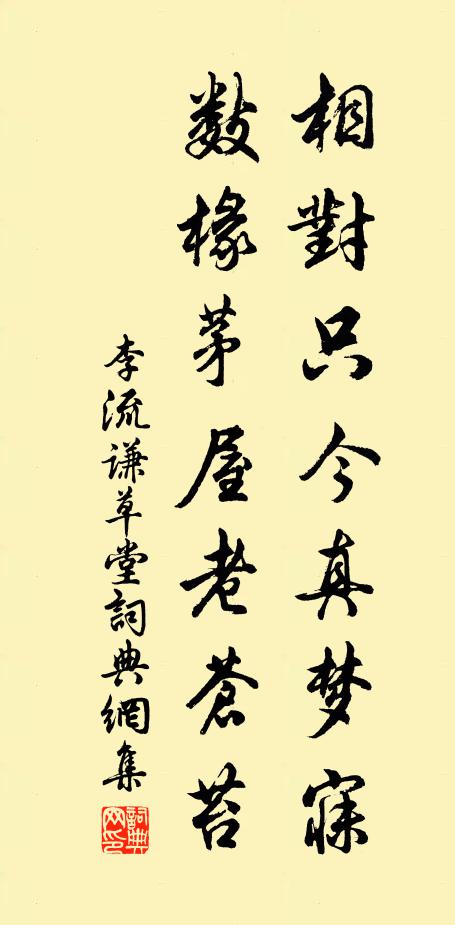 相對只今真梦寐
数椽茅屋老蒼苔
李流谦草堂詞典網集
詞典網印